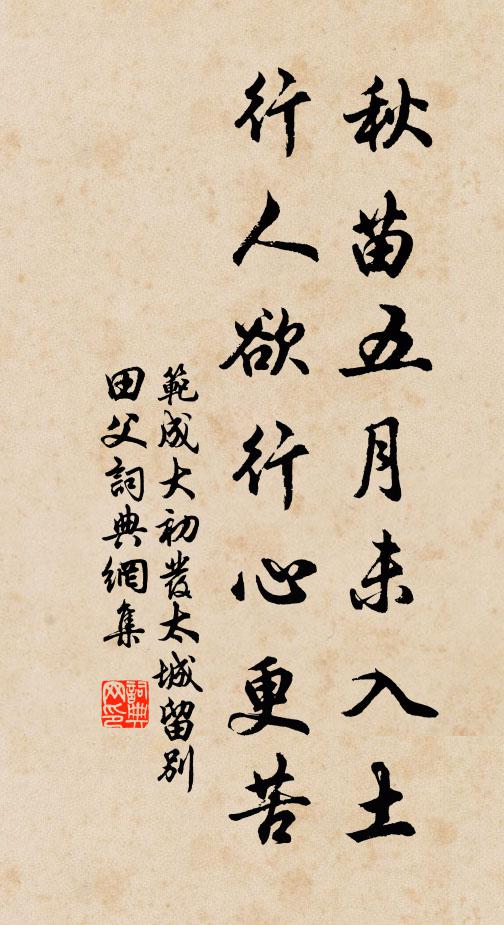 秋苗五月未入土
行人欲行心更苦
範成大初發太城留別
田父詞典網集
詞典
网印